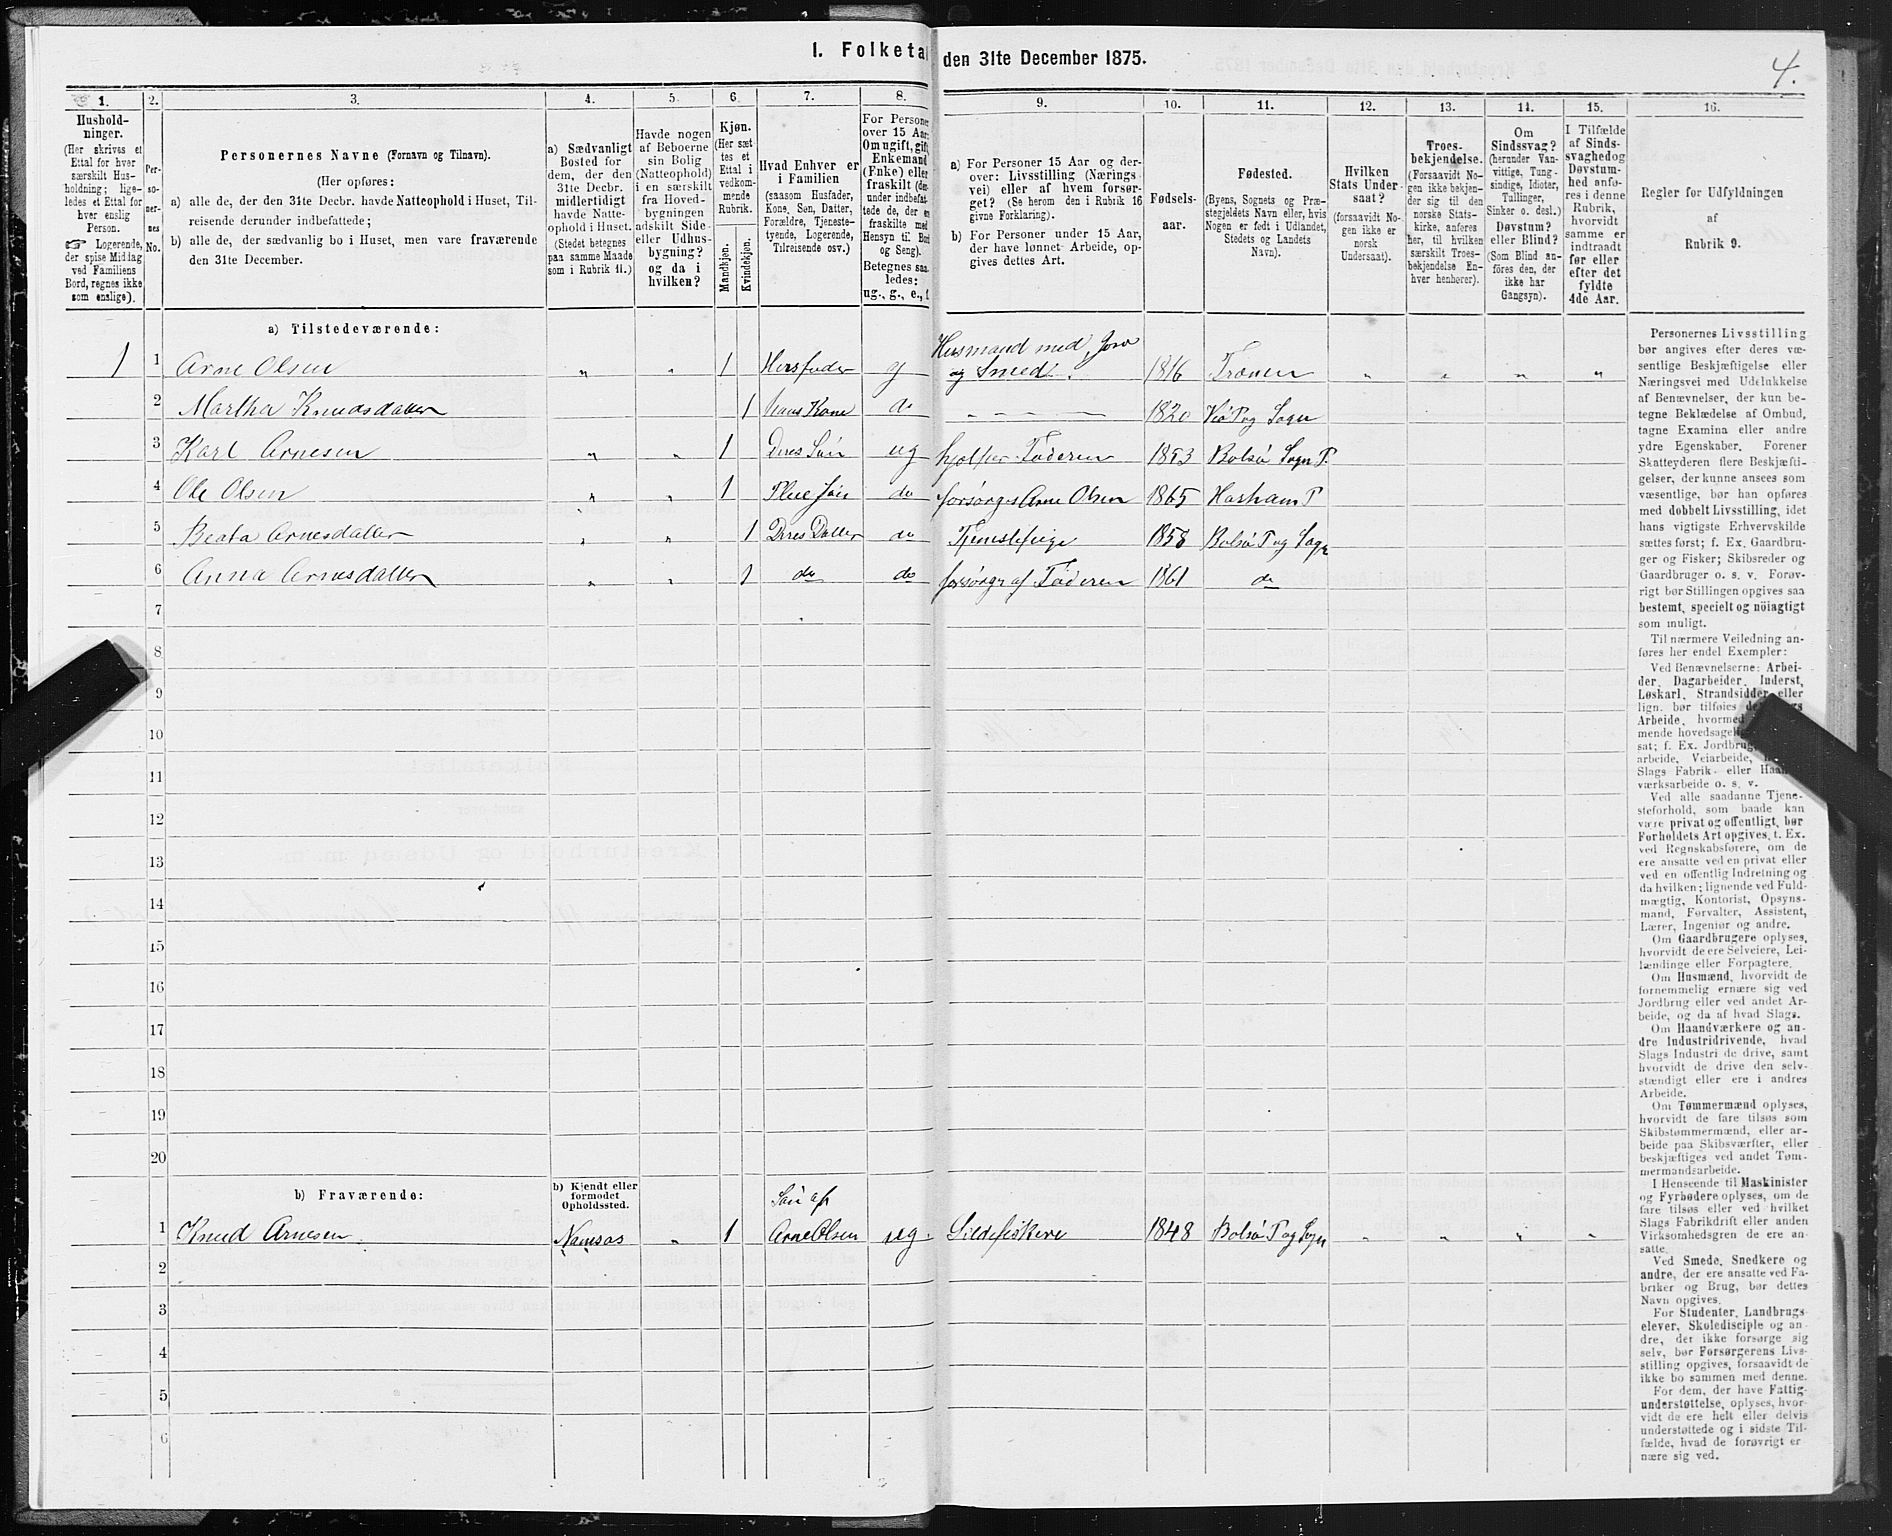 I. Folketal den 31te December 1875.
4.
1. 2. 3. 4. 5. 6. 7. 8. 9. 10. 11. 12. 13. 14. 15. 16.
Hushold-
ninger.
(Her skrives et
Ettal for hver
særskilt Hus-
holdning; lige-
ledes et Ettal for
hver enslig
Person.
☞ Logerende,
der spise Middag
ved Familiens
Bord, regnes ikke
som enslige).
Per-
so-
ner-
nes
No.
Personernes Navne (Fornavn og Tilnavn).
(Her opføres:
a) alle de, der den 31te Decbr. havde Natteophold i Huset, Til-
reisende derunder indbefattede;
b) alle de, der sædvanlig bo i Huset, men vare fraværende
den 31te December.
a) Sædvanligt
Bosted for
dem, der den
31te Decbr.
midlertidigt
havde Natte-
ophold i Huset.
(Stedet betegnes
paa samme Maade
som i Rubrik 11.)
Havde nogen
af Beboerne
sin Bolig
(Natteophold)
i en særskilt
fra Hoved-
bygningen
adskilt Side-
eller Udhus-
bygning?
og da i
hvilken?
Kjøn.
(Her sæt-
tes et
Ettal i
vedkom-
mende
Rubrik.
Mandkjøn.
Kvindekjøn.
Hvad Enhver er
i Familien
(saasom Husfader,
Kone, Søn, Datter,
Forældre, Tjeneste-
tyende, Logerende,
Tilreisende osv.)
For Persone
over 15 Aar
Om ugift, gif
Enkemand
(Enke) elle
fraskilt (de
under indbefat
tede de, der e
fraskilte med
Hensyn til Bo
og Seng).
Betegnes saa
ledes:
ug., g., e., f
a) For Personer 15 Aar og der-
over: Livsstilling (Nærings-
vei) eller af hvem forsør-
get? (Se herom den i Rubrik 16
givne Forklaring).
b) For Personer under 15 Aar,
der have lønnet Arbeide, op-
gives dettes Art.
Fødsels-
aar.
Fødested.
(Byens, Sognets og Præ-
stegjeldets Navn eller, hvis
Nogen er født i Udlandet,
Stedets og Landets
Navn).
Hvilken
Stats Under-
saat?
(forsaavidt No-
gen ikke er
norsk
Undersaat).
Troes-
bekjendelse.
(Forsaavidt No-
gen ikke bekjen-
der sig til den
norske Stats-
kirke, anføres
her, til hvilken
særskilt Troes-
bekjendelse En-
hver henhører).
Om
Sindssvag?
(herunder Van-
vittige, Tung-
sindige, Idioter,
Tullinger,
Sinker o. desl.)
Døvstum?
eller Blind?
(Som Blind an-
føres den, der
ikke har
Gangsyn).
I Tilfælde
af Sinds-
svaghedog
Døvstum-
hed anfø-
res i denne
Rubrik,
hvorvidt
samme er
indtraadt
før eller
efter det
fyldte
4de Aar.
Regler for Udfyldningen
af
Rubrik 9.
a) Tilstedeværende:
1 1 Arne Olsen „ „ 1 Husfader g Husmand med Jord og Smed. 1816 Frænen „ „ „ „
2 Martha Knudsdatter 1 hans Kone do — 1820 Veø P og Sogn
3 Karl Arnesen „ „ 1 Deres Søn ug hjelper Faderen 1853 Bolsø Sogn P.
4 Ole Olsen „ „ 1 Pleie Søn do forsørges Arne Olsen 1865 Harham P
5 Beata Arnesdatter „ „ 1 Deres Datter do Tjenestepige 1858 Bolsø P og Sogn
6 Anna Arnesdatter „ „ 1 do do forsørg af Faderen 1861 do
7
8
9
10
11
12
13
14
15
16
17
18
19
20
b) Fraværende:
b) Kjendt eller
formodet
Opholdssted.
1 Knud Arnesen. Namsos „ 1 Søn af Arne Olsen ug. Sildefiskere 1848 Bolsø P og Sogn „ „ „ „
2
3
4
5
6
Personernes Livsstilling
bør angives efter deres væ-
sentlige Beskjæftigelse eller
Næringsvei med Udelukkelse
af Benævnelser, der kun be-
tegne Beklædelse af Ombud,
tagne Examina eller andre
ydre Egenskaber. Forener
Skatteyderen flere Beskjæfti-
gelser, der kunne ansees som
væsentlige, bør han opføres
med dobbelt Livsstilling, idet
hans vigtigste Erhvervskilde
sættes først; f. Ex. Gaardbru-
ger og Fisker; Skibsreder og
Gaardbruger o. s. v. Forøv-
rigt bør Stillingen opgives saa
bestemt, specielt og nøiagtigt
som muligt.
Til nærmere Veiledning an-
føres her endel Exempler:
Ved Benævnelserne: Arbei-
der, Dagarbeider, Inderst,
Løskarl, Strandsidder eller
lign. bør tilføies
Arbeide, hvormed
mende hovedsagelig
sat; f. Ex. Jordbrug
arbeide, Veiarbeide,
Slags Fabrik- eller Haand-
værksarbeide o. s. v.
Ved alle saadanne Tjene-
steforhold, som baade kan
være privat og offentligt, bør
Forholdets Art opgives, t. Ex.
ved Regnskabsførere, om de
ere ansatte ved en privat eller
ved en offentlig Indretning og
da hvilken; lignende ved Fuld-
mægtig, Kontorist, Opsyns-
mand, Forvalter, Assistent,
Lærer, Ingeniør og andre.
Om Gaardbrugere oplyses,
hvorvidt de ere Selveiere, Lei-
lændinge eller Forpagtere.
Om Husmænd, hvorvidt de
fornemmelig ernære sig ved
Jordbrug eller ved andet Ar-
beide, og da af hvad Slags.
Om Haandværkere og an-
dre Industridrivende, hvad
Slags Industri de drive, samt
hvorvidt de drive den selv-
stændigt eller ere i andres
Arbeide.
Om Tømmermænd oplyses,
hvorvidt de fare tilsøs som
Skibstømmermænd, eller ar-
beide paa Skibsværfter, eller
beskjæftiges ved andet Tøm-
mermandsarbeide.
I Henseende til Maskinister
og Fyrbødere oplyses, om de
fare tilsøs eller ved hvilket
Slags Fabrikdrift eller anden
Virksomhedsgren de ere an-
satte.
Ved Smede, Snedkere og
andre, der ere ansatte ved Fa-
briker og Brug, bør dettes
Navn opgives.
For Studenter, Landbrugs-
elever, Skoledisciple og an-
dre, der ikke forsørge sig
selv, bør Forsørgerens Livs-
stilling opgives, forsaavidt de
ikke bo sammen med denne.
For dem, der have Fattig-
understøttelse, oplyses, hvor-
vidt de ere helt eller delvis
understøttede og i sidste Til-
fælde, hvad de forøvrigt er-
nære sig ved.